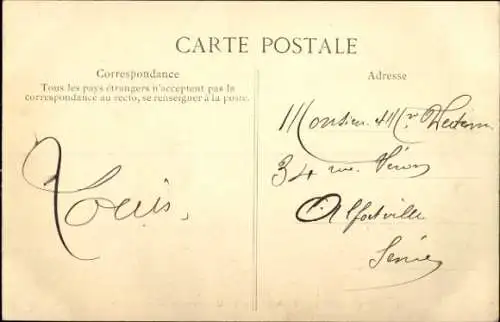 CARTE POSTALE
Correspondance
Tous les pays étrangers n'acceptent pas la
correspondance au recto, se renseigner à la poste.
Louis,
Adresse
Monsieur & Mme
34 rue Véron
Alfortville
Seine